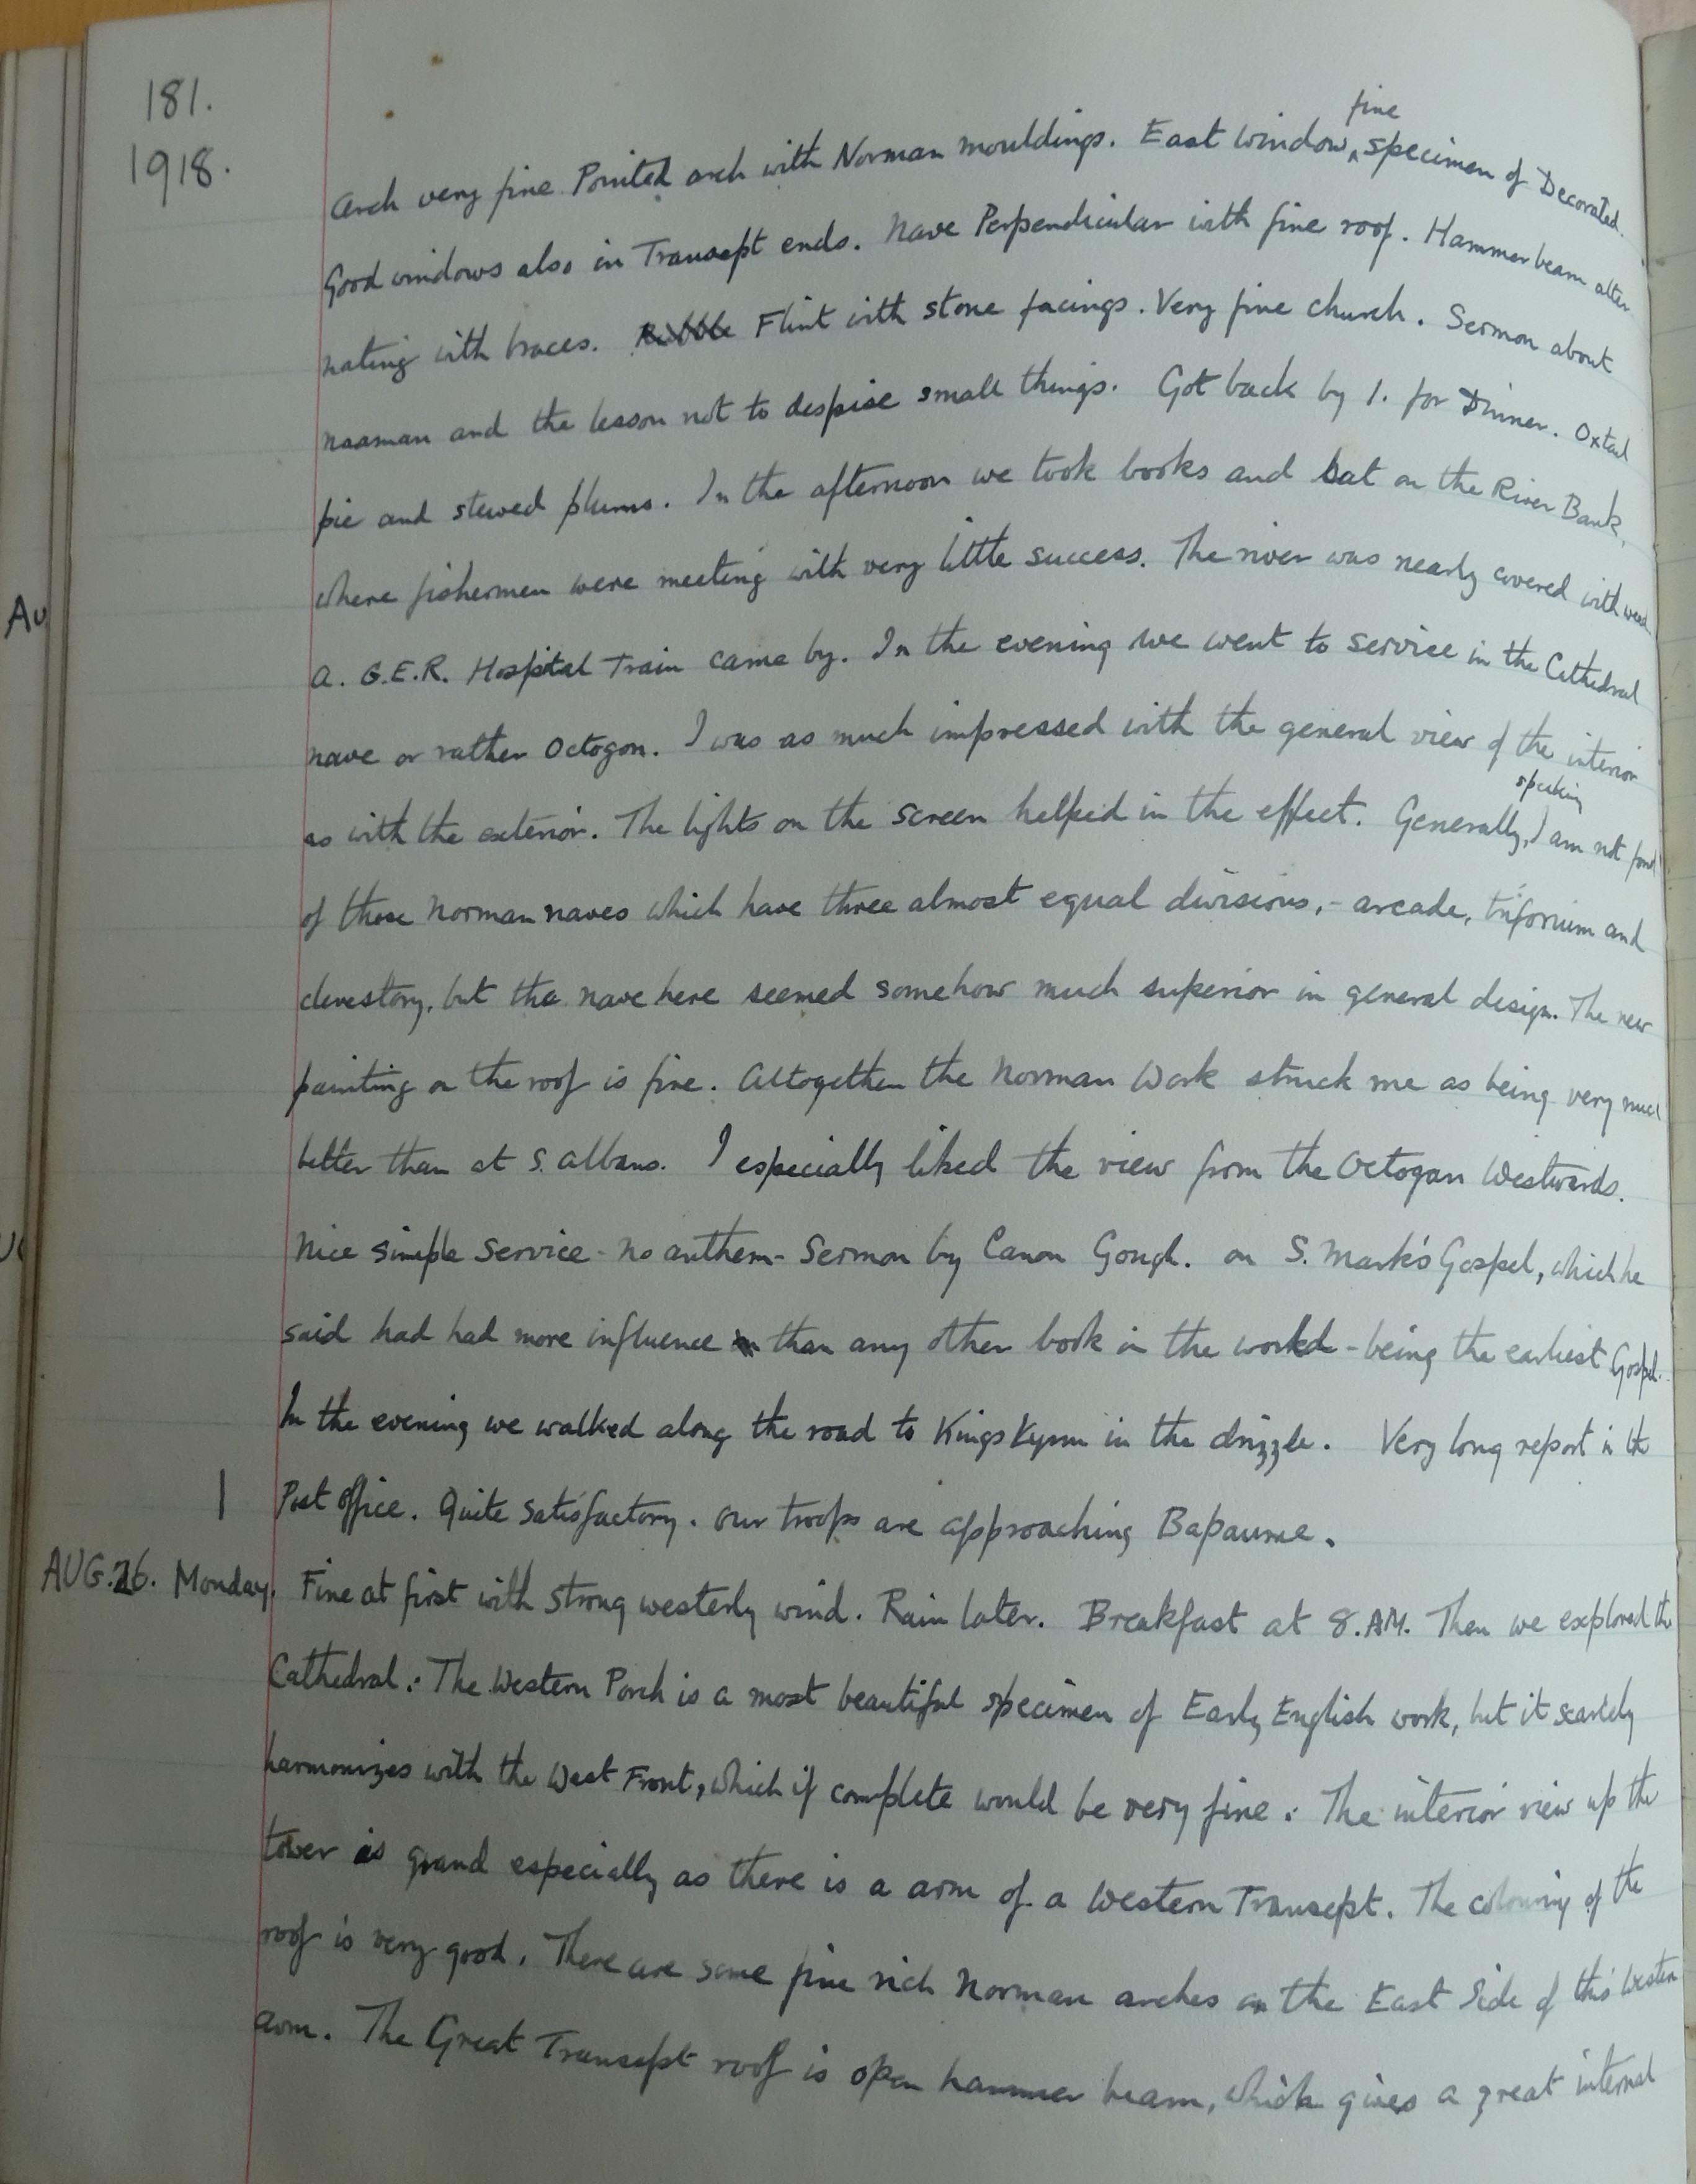 181.
1918.
Arch very fine Pointed arch with Norman mouldings. East window fine specimen of Decorated.
Good windows also in Transept ends. Nave Perpendicular with fine roof. Hammerbeam alter
nating with braces. Rubble Flint with stone facings. Very fine church. Sermon about
Naaman and the lesson not to despise small things. Got back by 1. for Dinner. Oxtail
pie and stewed plums. In the afternoon we took books and sat on the River Bank,
where fishermen were meeting with very little success. The river was nearly covered with weed.
A. G.E.R. Hospital Train came by. In the evening we went to service in the Cathedral
nave or rather Octogon. I was as much impressed with the general view of the interior
as with the exterior. The lights on the screen helped in the effect. Generally speaking, I am not fond
of those Norman naves which have three almost equal divisions, - arcade, triforium and
clerestory, but the nave here seemed somehow much superior in general design. The new
painting on the roof is fine. Altogether the Norman Work struck me as being very much
better than at S. Albans. I especially liked the view from the Octogan Westwards.
Nice simple Service - no anthem - Sermon by Canon Gough. on S. Mark's Gospel, which he
said had had more influence than any other book in the world - being the earliest Gospel.
In the evening we walked along the road to Kings Lynn in the drizzle. Very long report in the
Post office. Quite satisfactory. Our troops are approaching Bapaume.
AUG.26. Monday. Fine at first with strong westerly wind. Rain later. Breakfast at 8.AM. Then we explored the
Cathedral: The Western Porch is a most beautiful specimen of Early English work, but it scarcely
harmonizes with the West Front, which if complete would be very fine: The interior view up the
tower is grand especially as there is a arm of a Western Transept. The colouring of the
roof is very good. There are some fine rich Norman arches on the East Side of this Western
arm. The Great Transept roof is open hammer beam, which gives a great internal
Au